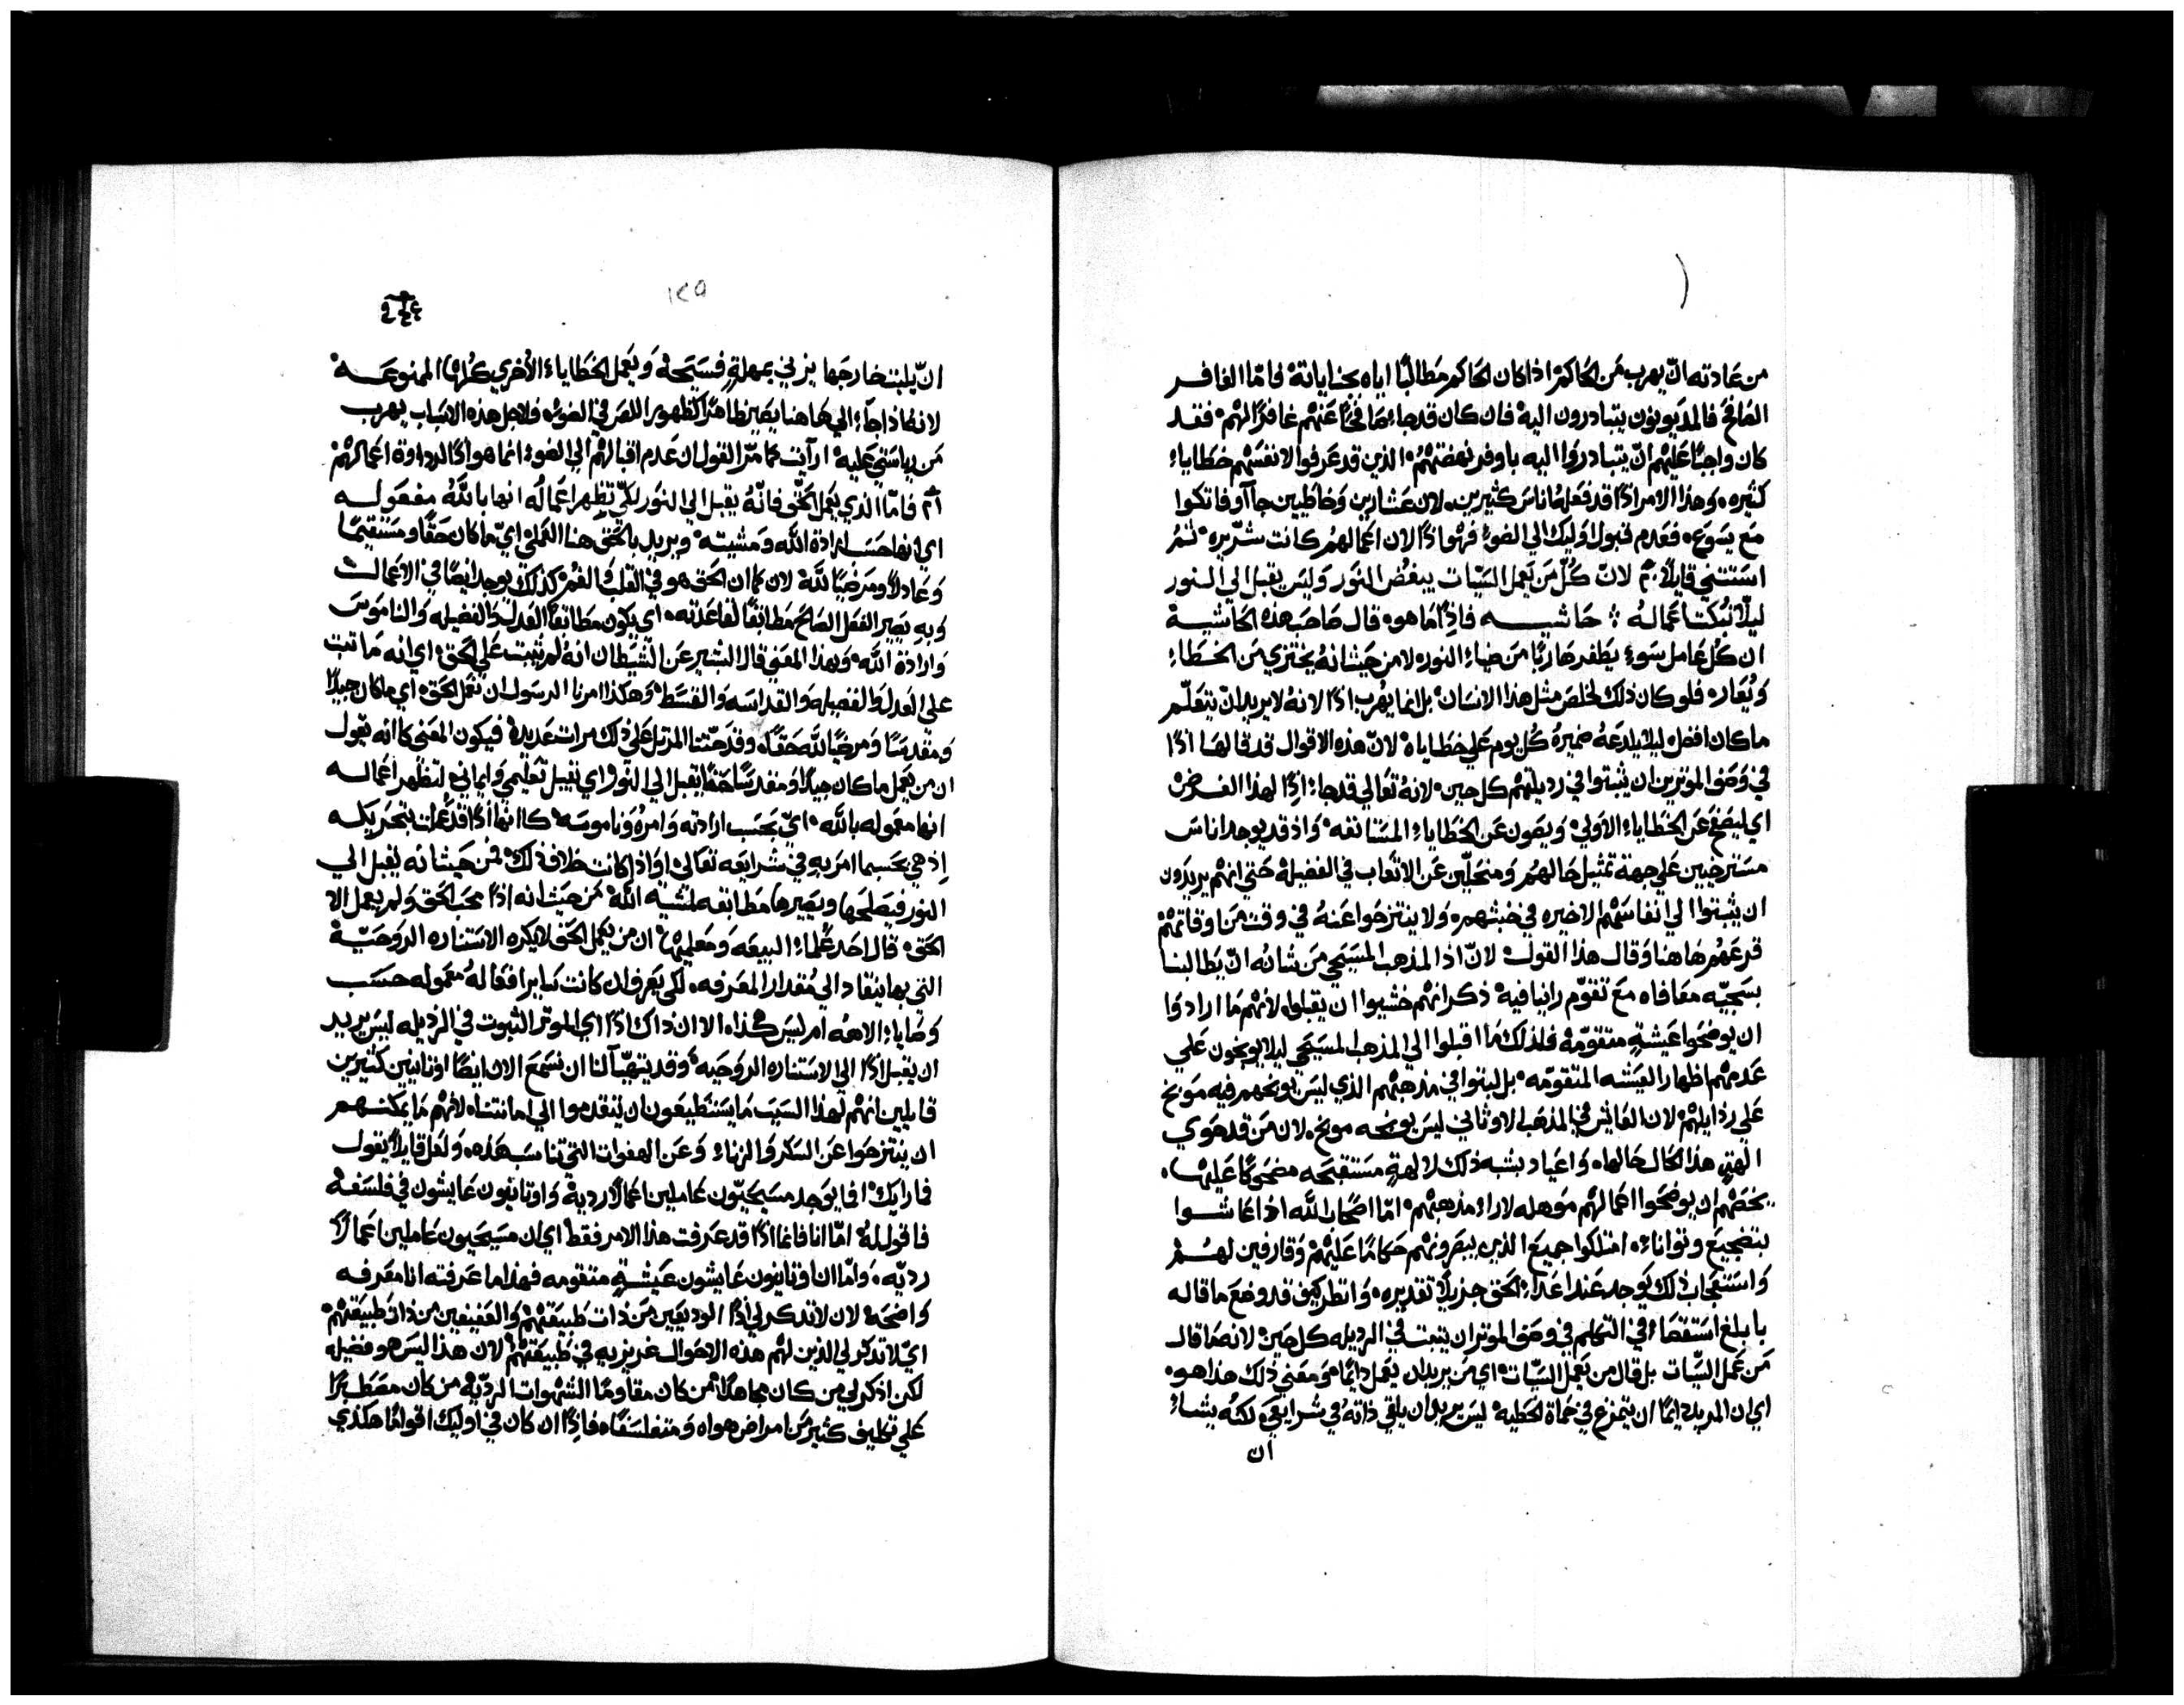 من عادته ان يهرب من الحاكم اذا كان الحاكم مطالبًا اياه بجناياته فامّا الغافر
الصافح فالمديونون يتبادرون اليه فان كان قد جاء صافحًا عنهم غافرًا لهم فقد
كان واجبًا عليهم ان يتبادروا اليه باوفر نهضتهم الذين قد عرفوا لانفسهم خطاياء
كثيره وهذا الامر اذًا قد فعله اناس كثيرين لان عشارين وخاطيين جآأو فاتكوا
مع يسوع فعدم قبول اوليك الي الضوء فهو اذًا لان اعمالهم كانت شرّيره ثم
استتني قايلاً لانّ كلّ من يعمل السيّات يبغض النور وليس يقبل الي النور
ليلّا تبكت اعماله حاشيه فاذًا ما هو قال صاحب هذه الحاشية
ان كل عامل سوء يطفر هاربًا من ضياء النور لا من حيث انه يختزي من الخطاء
ويعار فلو كان ذلك لخلص مثل هذا الانسان بل انما يهرب اذًا لانه لا يريد ان يتعلّم
ما كان افضل ليلا يلدعه ضميره كل يوم علي خطاياه لانّ هذه الاقوال قد قالها اذًا
في وصف الموترين ان يثبتوا في رديلتهم كل حين لانه تعالي قد جاء اذًا لهذا الغرض
اي ليصفح عن الخطاياء الاولي ويصون عن الخطاياء المستانفه واذ قد يوجد اناس
مسترخيين علي جهة تمثيل حالهم ومنحلّين عن الاتعاب في الفضيلة حتي انهم يريدون
ان يثبتوا الي انفاسهم الاخيره في خبثهم ولا ينتزحوا عنه في وقت من اوقاتهم
قرعهم هاهنا وقال هذا القول لانّ اذا المذهب المسيحي من شانه ان يطالبنا
بسجيّه معافاه مع تقوّم راينا فيه ذكر انهم خشيوا ان يقبلوه لانهم ما ارادوا
ان يوضحوا عيشةٍ متقوّمة فلذلك ما اقبلوا الي المذهب المسيحي ليلا يوبخون علي
عدمهم اظهار العيشه المتقوّمه بل لبتوا في مذهبهم الذي ليس يوبخهم فيه موبخ
علي رذايلهم لان العايش في المذهب الاوثاني ليس يوبخه موبخ لان من قد حوي
الهةٍ هذا الحال حالها واعياد بشبه ذلك لالهةٍ مستقبحه مضحوكًا عليها
يخصّهم ان يوضحوا اعمالهم موهله لاراء مذهبهم امّا اصحاب الله اذا عاشوا
بتضجيع وتواناء امتلكوا جميع الذين يبصرونهم حكامًا عليهم وقارفين لهم
واستعجاب ذلك يوجد عند اعداء الحق جزيلاً تقديره وانظر كيف قد وضع ما قاله
بابلغ استقصاء في التكلم في وصف الموتر ان يتبت في الرديله كل حين لانه ما قال
من عمل السيّات بل قال من يعمل السيّات اي من يريد ان يعمل دايمًا ومعني ذلك هذا هو
اي ان المريد دايمًا ان يتمرغ في حماة الخطيه ليس يريد ان يلقي ذاته في شرايعي لكنه يشاء
ان
١٢٥
انّ يلبث خارجها يزني بمهلةٍ فسيحة ويعمل الخطاياء الأخري كلها الممنوعه
لانه اذا جآء الي هاهنا يصير ظاهرًا كظهور اللص في الضوء فلاجل هذه الاسباب يهرب
من رياستي عليه ارأيت كما مرّ القول ان عدم اقبالهم الي الضوء انما هو اذًا لرداوة اعمالهم
فامّا الذي يعمل الحقّ فانّه يقبل الي النور لكي تظهر اعماله انها بالله مفعوله
اي انها حسب ارادة الله ومشيته ويريد بالحق هنا العملي ايّ ما كان حقًا ومستقيمًا
وعادلاً ومرضيًا لله لان كما ان الحق هو في القلب والفم كذلك يوجد ايضًا في الاعمال
وبه يصير الفعل الصالح مطابقًا لقاعدته اي يكون مطابقًا العدل والفضيله والناموس
وارادة الله وبهذا المعني قال البشير عن الشيطان انه لم يثبت علي الحق اي انه ما تبت
علي العدل والفضيله والقداسه والقسط وهكذا امرنا الرسول ان نعمل الحق اي ما كان جيدًا
ومقدسًا ومرضيًا لله حقًا وقد حثنا المرتل علي ذلك مرات عديدة فيكون المعني كانه يقول
ان من يعمل ما كان جيدًا ومقدسًا حقًا يقبل الي النور اي يقبل تعليمي وايماني لتظهر اعماله
انها معموله بالله ايّ بحسب ارادته وامره وناموسه كانها اذًا قد عملت بتحريكه
اذ هي بحسبما امر به في شرايعه تعالي او اذا كانت خلاف ذلك فمن حيث انه يقبل الي
النور فيصلحها ويصيرها مطابقه لمشية الله من حيث انه اذًا محب الحق ولم يعمل الا
الحق قال احد علماء البيعه ومعلميها ان من يعمل الحق لا يكره الاستناره الروحيّة
التي بها ينقاد الي مقدار المعرفه لكي يعرف ان كانت ساير افعاله معموله حسب
وصاياء الاهه ام ليس هكذا الا ان ذاك اذًا اي الموتر الثبوت في الرذيله ليس يريد
ان يقبل اذًا الي الاستناره الروحيه وقد يتهيّا لنا ان نسمع الان ايضًا اوثانيين كثيرين
قايلين انهم لهذا السبب ما يستطيعون ان يتقدموا الي امانتنا لانهم ما يمكنهم
ان ينتزحوا عن السكر والزناء وعن الهفوات التي تناسب هذه ولعل قايلاً يقول
فما رايك افما يوجد مسيحيّون عاملين اعمالاً رديةً واوثانيون عايشون في فلسفة
فاقول له امّا انا فانما اذًا قد عرفت هذا الامر فقط اي ان مسيحيون عاملين اعمالاً
رديّه وامّا ان اوثانيون عايشون عيشةٍ متقومه فهذا ما عرفته انا معرفه
واضحه لان لا تذكر لي اذًا الوديعين من ذات طبيعتهم والعفيفين من ذات طبيعتهم
ايّ لا تذكر لي الذين لهم هذه الاحوال غريزيه في طبيعتهم لان هذا ليس هو فضيله
لكن اذكر لي من كان مجاهدًا من كان مقاومًا الشهوات الرديّة من كان مضطبرًا
علي تكليف كثير من امراض هواه ومتفلسفًا فاذًا ان كان في اوليك اقوامًا هكذي